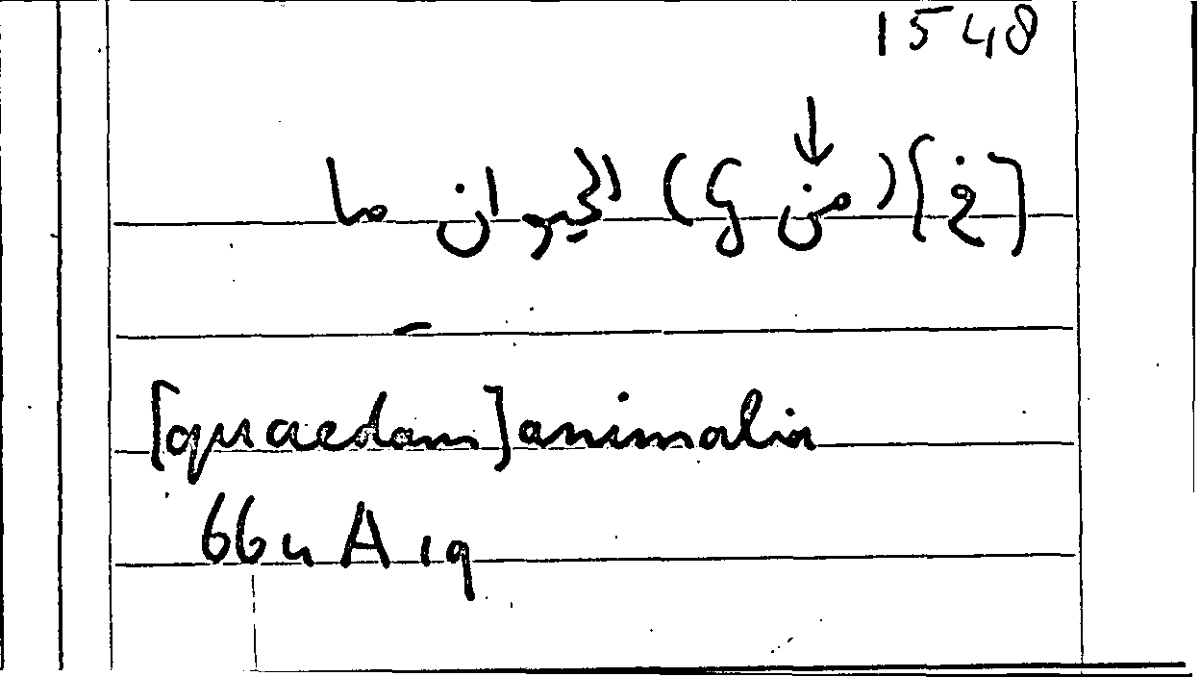 1548
[في] (من ↓ G) الحيوان ما
[quaedam] animalia
664 A 19